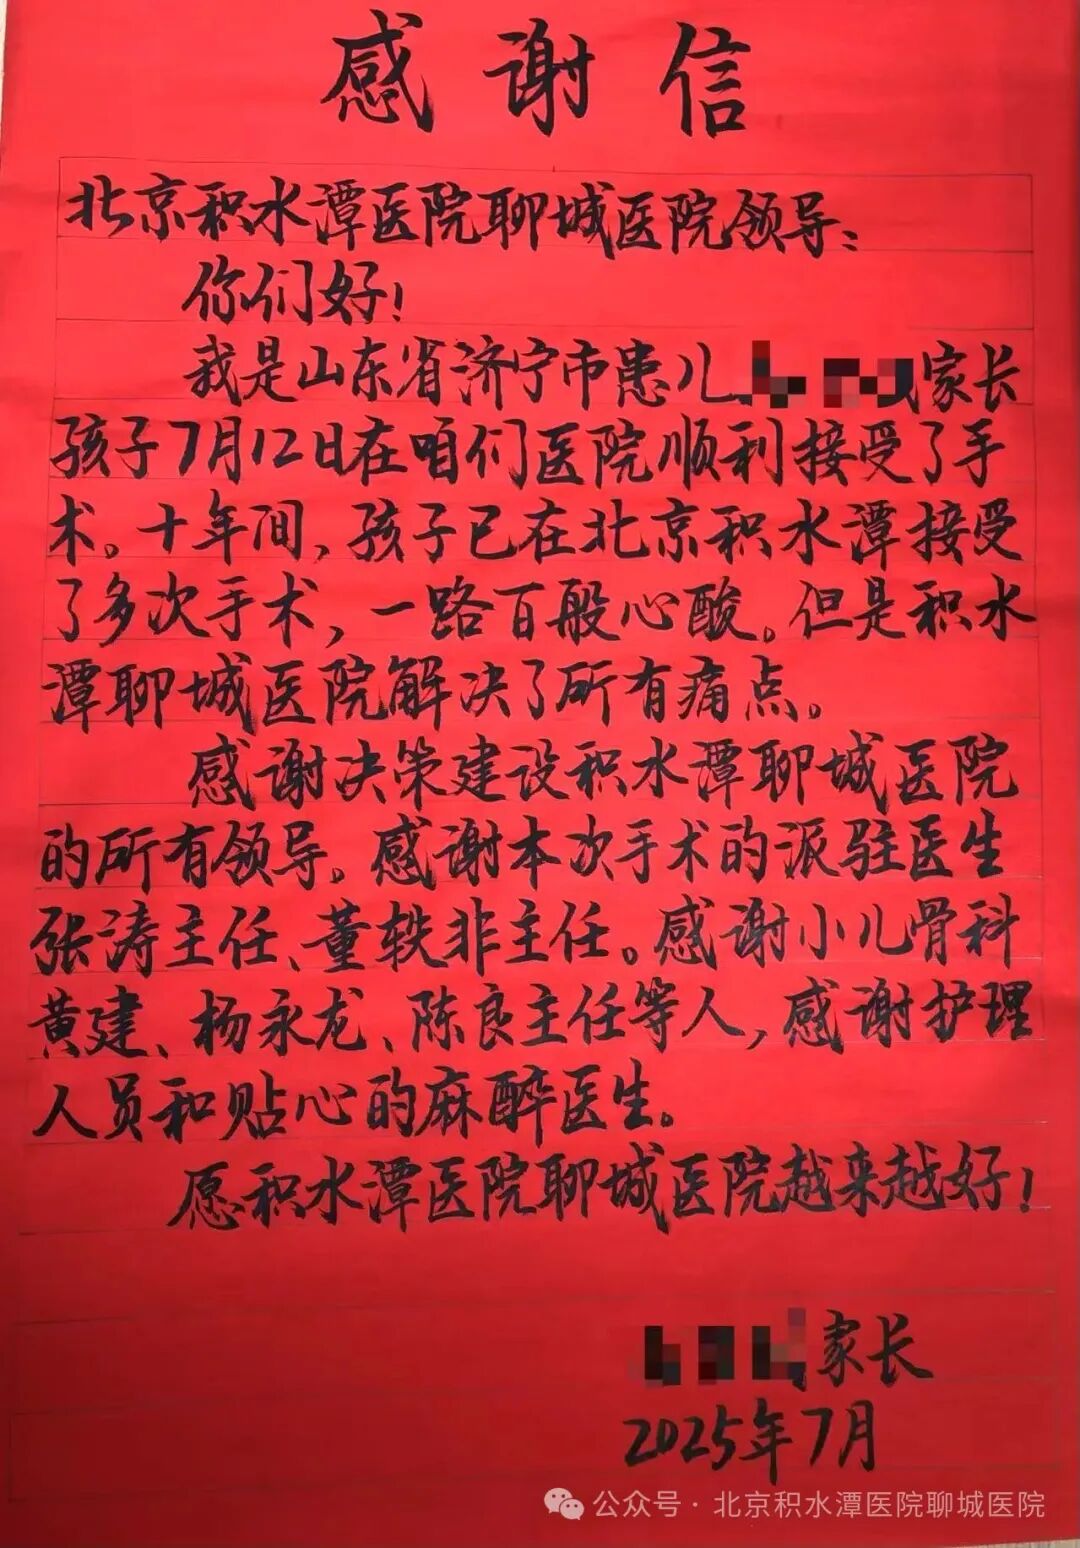 感谢信
北京积水潭医院聊城医院领导：
你们好！
我是山东省济宁市患儿 家长
孩子7月12日在咱们医院顺利接受了手
术。十年间，孩子已在北京积水潭接受
了多次手术，一路百般心酸。但是积水
潭聊城医院解决了所有痛点。
感谢决策建设积水潭聊城医院
的所有领导。感谢本次手术的派驻医生
张涛主任、董轶非主任。感谢小儿骨科
黄建、杨永龙、陈良主任等人，感谢护理
人员和贴心的麻醉医生。
愿积水潭医院聊城医院越来越好！
家长
2025年7月
公众号·北京积水潭医院聊城医院